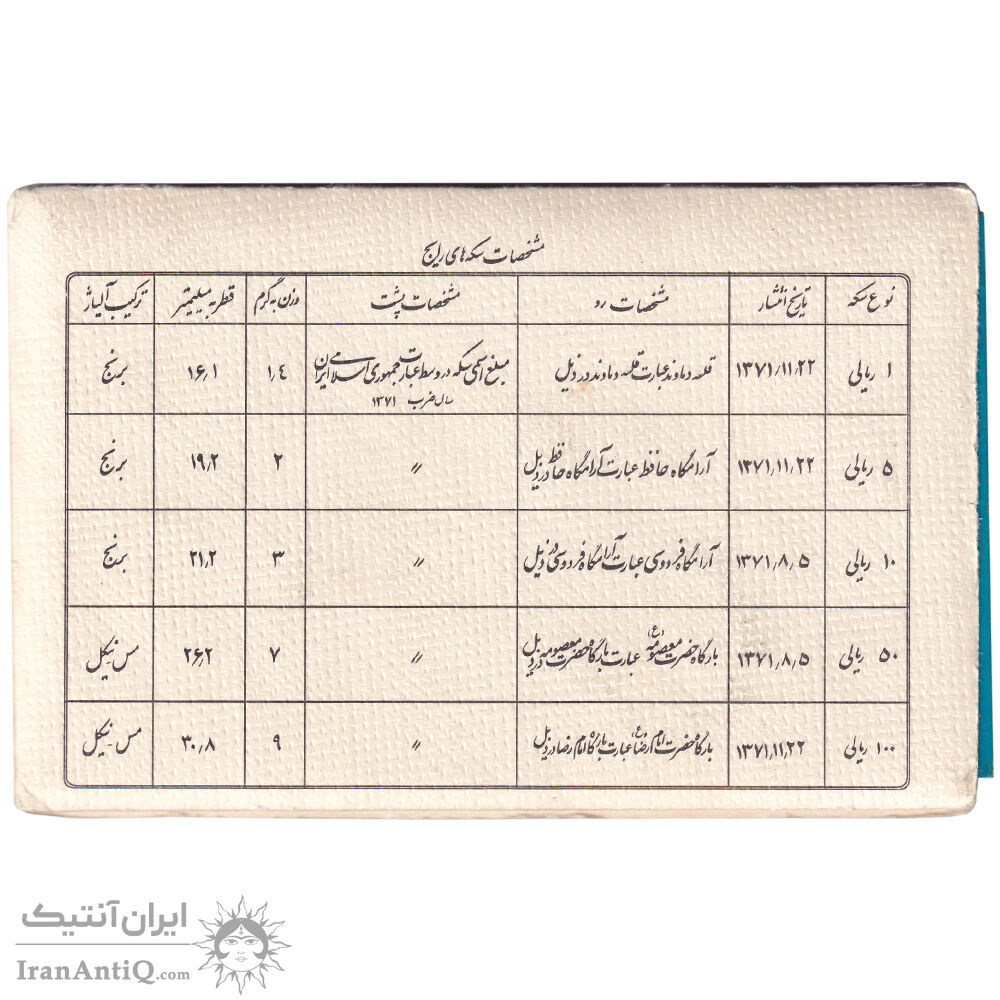 مشخصات سکه های رایج
نوع سکه تاریخ انتشار مشخصات رو مشخصات پشت وزن به گرم قطر به میلیمتر ترکیب آلیاژ
۱ ریالی ۱۳۷۱٫۱۱٫۲۲ قله دماوند عبارت قله دماوند در ذیل مبلغ اسمی سکه در وسط عبارت جمهوری اسلامی ایران ۱٫۴ ۱۶٫۱ برنج
سال ضرب ۱۳۷۱
۵ ریالی ۱۳۷۱٫۱۱٫۲۲ آرامگاه حافظ عبارت آرامگاه حافظ در ذیل 〃 ۲ ۱۹٫۲ برنج
۱۰ ریالی ۱۳۷۱٫۸٫۵ آرامگاه فردوسی عبارت آرامگاه فردوسی در ذیل 〃 ۳ ۲۱٫۲ برنج
۵۰ ریالی ۱۳۷۱٫۸٫۵ بارگاه حضرت معصومه (ع) عبارت بارگاه حضرت معصومه در ذیل 〃 ۷ ۲۶٫۲ مس نیکل
۱۰۰ ریالی ۱۳۷۱٫۱۱٫۲۲ بارگاه حضرت امام رضا (ع) عبارت بارگاه امام رضا در ذیل 〃 ۹ ۳۰٫۸ مس نیکل
ایران آنتیک
IranAntiQ.com